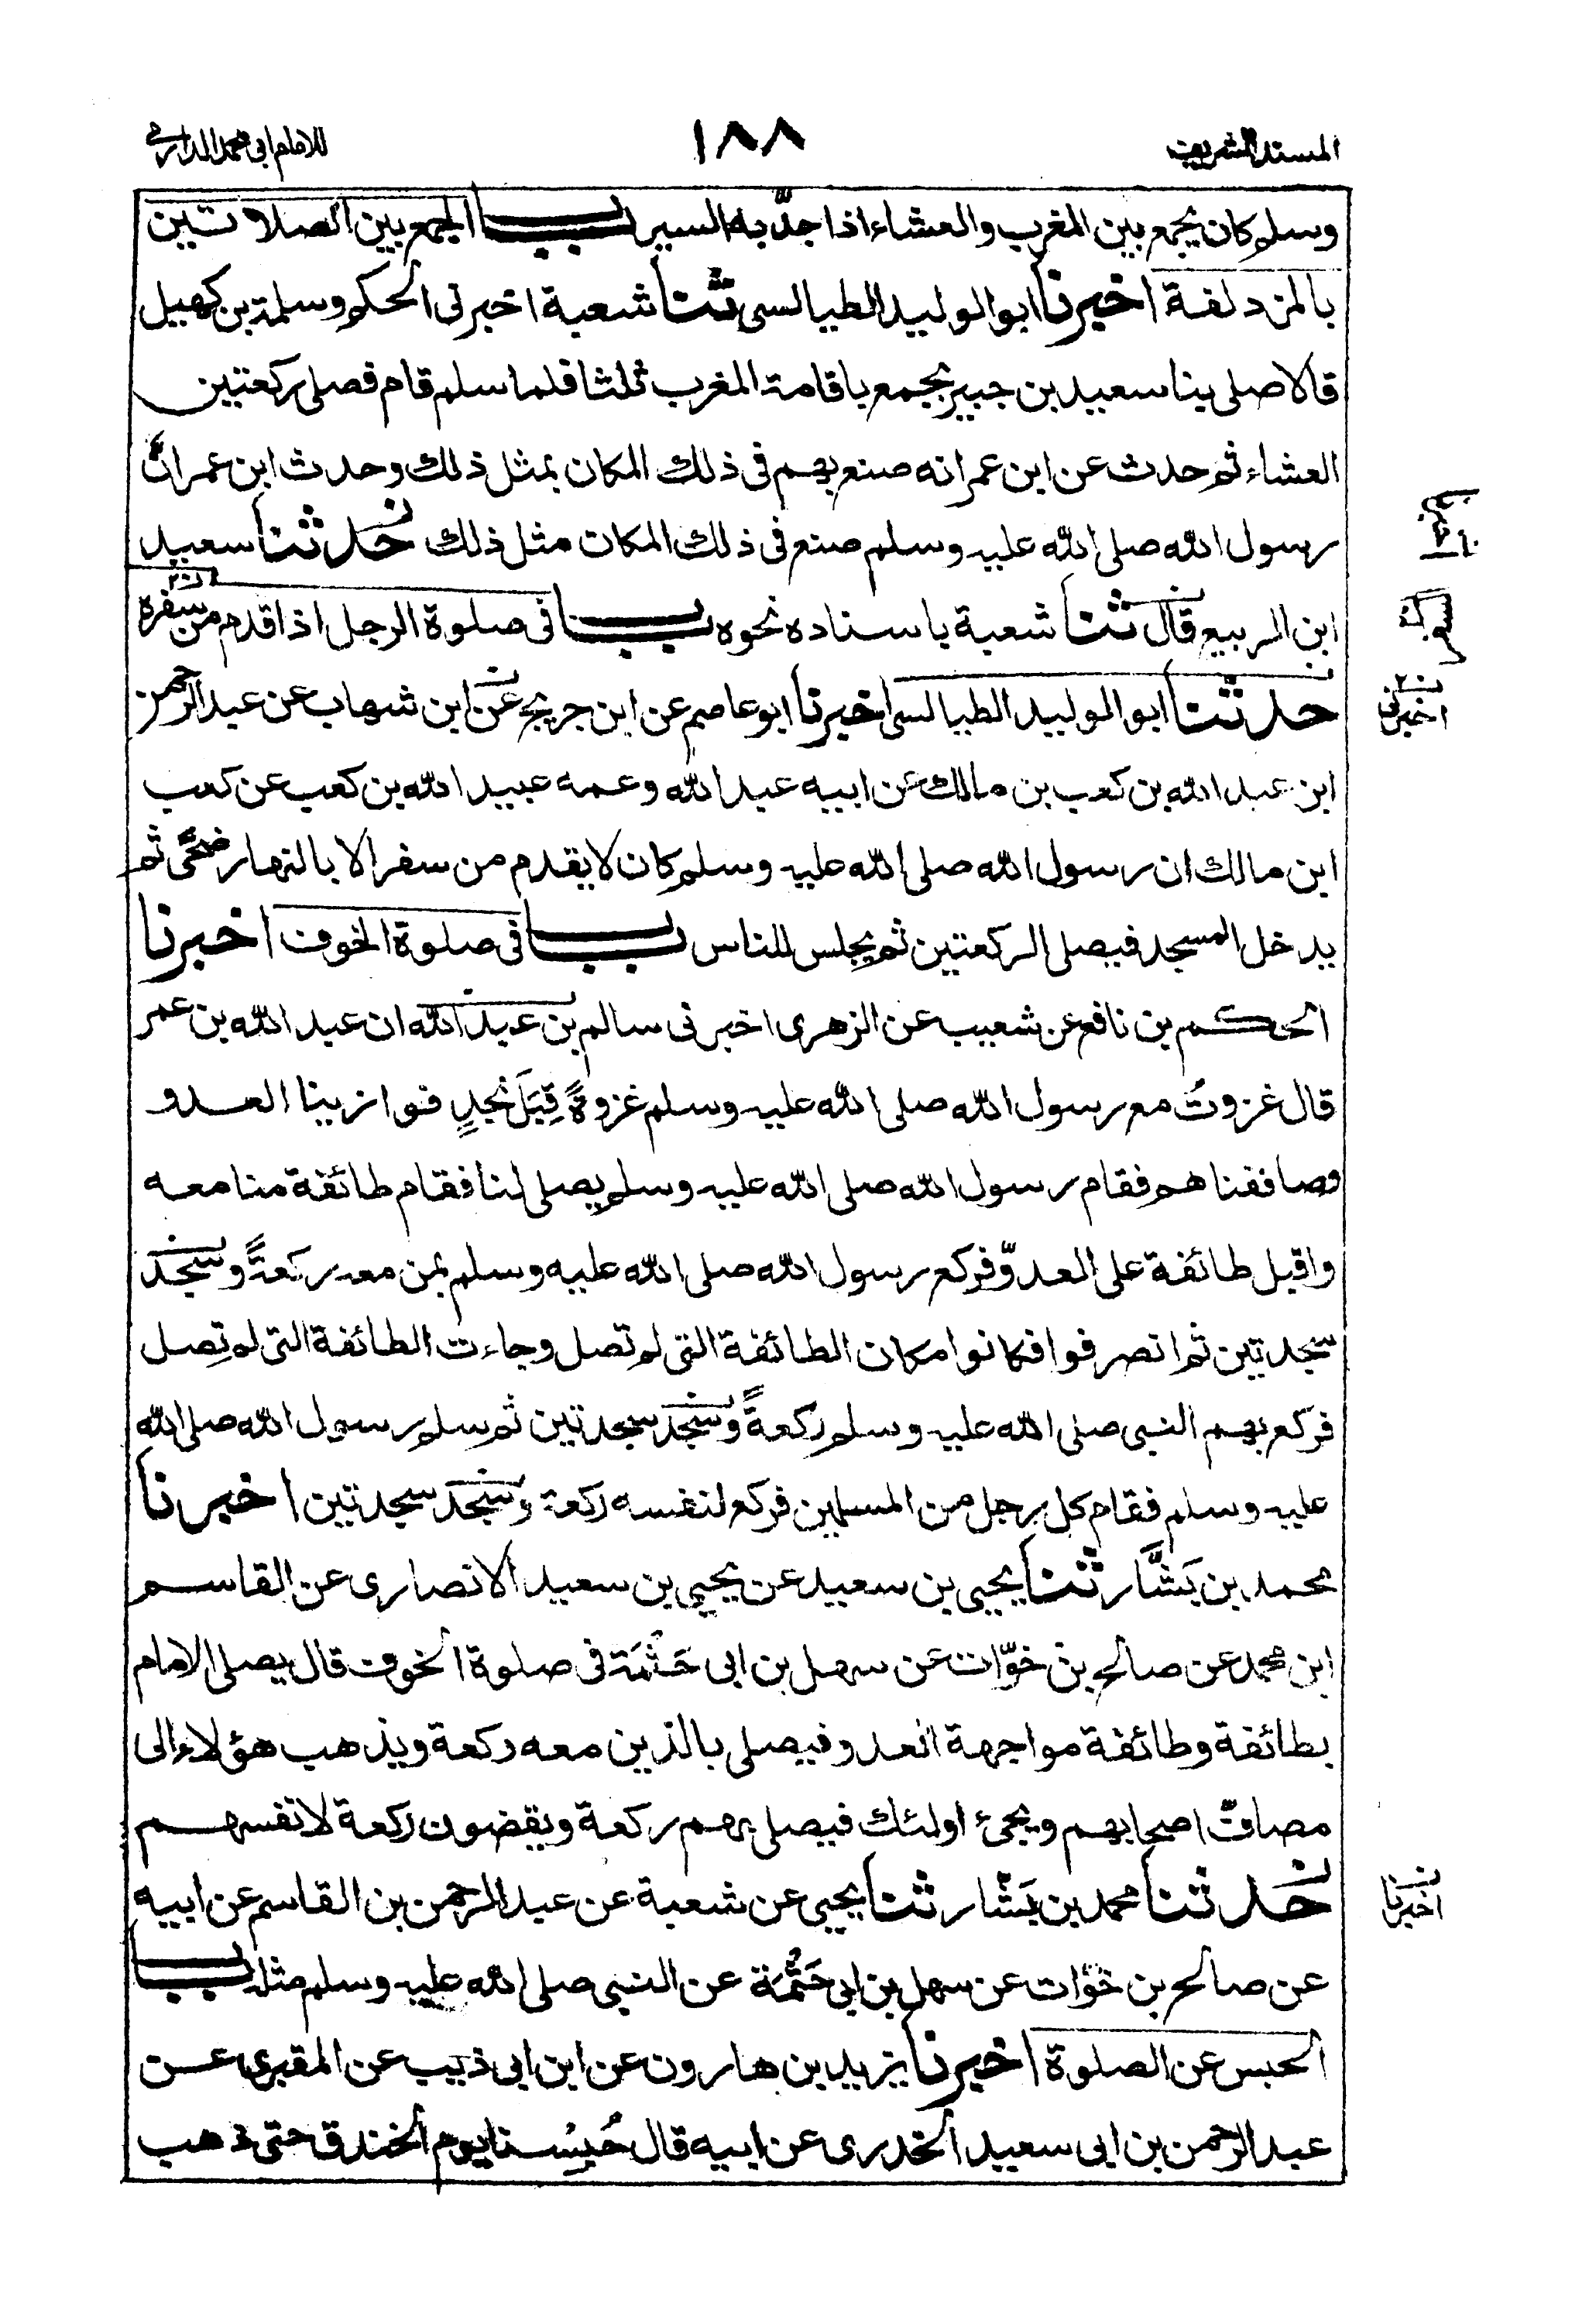 المسند الشريف
١٨٨
للامام ابى محمد الدارمى
وسلم كان يجمع بين المغرب والعشاء اذا جدّ به السير باب الجمع بين الصلاتين
بالمزدلفة اخبرنا ابو الوليد الطيالسى ثنا شعبة اخبرنى الحكم وسلمة بن كهيل
قالا صلى بنا سعيد بن جبير بجمع باقامة المغرب ثلثا فلما سلم قام فصلى ركعتين
العشاء ثم حدث عن ابن عمر انه صنع بهم فى ذلك المكان بمثل ذلك وحدث ابن عمر انّ
رسول الله صلى الله عليه وسلم صنع فى ذلك المكان مثل ذلك حدثنا سعيد
ابن الربيع قال ثنا شعبة باسناده نحوه باب فى صلوة الرجل اذا قدم من سفره
حدثنا ابو الوليد الطيالسى اخبرنا ابو عاصم عن ابن جريج عن ابن شهاب عن عبد الرحمن
اخبرنى
ابن عبد الله بن كعب بن مالك عن ابيه عبد الله وعمه عبيد الله بن كعب عن كعب
ابن مالك ان رسول الله صلى الله عليه وسلم كان لا يقدم من سفر الا بالنهار ضحًى ثم
يدخل المسجد فيصلى الركعتين ثم يجلس للناس باب فى صلوة الخوف اخبرنا
الحكم بن نافع عن شعيب عن الزهرى اخبرنى سالم بن عبد الله ان عبد الله بن عمر
قال غزوتُ مع رسول الله صلى الله عليه وسلم غزوةً قِبَلَ نجدٍ فوازينا العدو
وصاففناهم فقام رسول الله صلى الله عليه وسلم يصلى لنا فقام طائفة منا معه
واقبل طائفة على العدوّ فركع رسول الله صلى الله عليه وسلم بمن معه ركعةً وسجد
سجدتين ثم انصرفوا فكانوا مكان الطائفة التى لم تصل وجاءت الطائفة التى لم تصل
فركع بهم النبى صلى الله عليه وسلم ركعةً وسجد سجدتين ثم سلم رسول الله صلى الله
عليه وسلم فقام كل رجل من المسلمين فركع لنفسه ركعة وسجد سجدتين اخبرنا
محمد بن بَشَّار ثنا يحيى بن سعيد عن يحيى بن سعيد الانصارى عن القاسم
ابن محمد عن صالح بن خوّات عن سهل بن ابى حَثْمَة فى صلوة الخوف قال يصلى الامام
بطائفة وطائفة مواجهة العدو فيصلى بالذين معه ركعة ويذهب هؤلاء الى
مصافّ اصحابهم ويجئ اولئك فيصلى بهم ركعة ويقضون ركعة لانفسهم
حدثنا محمد بن بَشّار ثنا يحيى عن شعبة عن عبد الرحمن بن القاسم عن ابيه
اخبرنا
عن صالح بن خوّات عن سهل بن ابى حَثْمَة عن النبى صلى الله عليه وسلم مثله باب
الحبس عن الصلوة اخبرنا يزيد بن هارون عن ابن ابى ذئيب عن المقبرى عن
عبد الرحمن بن ابى سعيد الخدرى عن ابيه قال حُبِسْنا يوم الخندق حتى ذهب